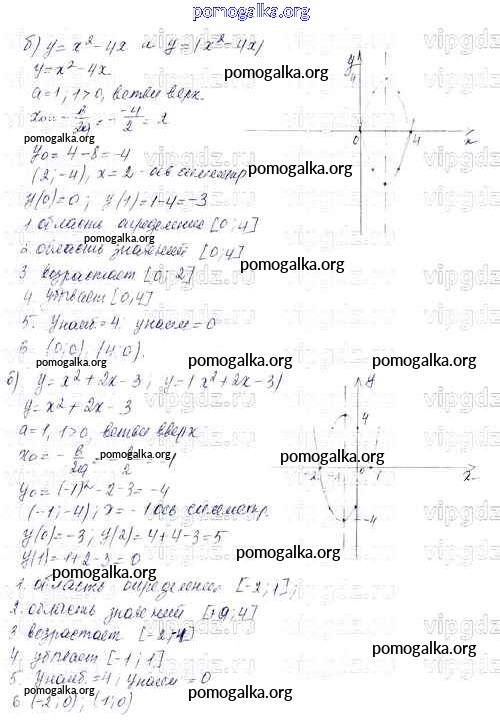 pomogalka.org
б) y = x² - 4x и y = |x² - 4x|
y = x² - 4x
a = 1, 1>0, ветви вверх.
x₀ = - в/2a = - -4/2 = 2
y₀ = 4 - 8 = -4
(2; -4), x = 2 - ось симметр
y(0) = 0; y(1) = 1-4 = -3
1. область определения [0; 4]
2. область значений [0; 4]
3 возрастает [0; 2]
4. убывает [0,4]
5. y наиб. = 4; y наим = 0
6. (0; 0), (4; 0).
б) y = x² + 2x - 3; y = |x² + 2x - 3|
y = x² + 2x - 3
a = 1, 1>0, ветви вверх
x₀ = - в/2a
y₀ = (-1)² - 2 - 3 = -4
(-1; -4); x = -1 ось симметр.
y(0) = -3; y(2) = 4 + 4 - 3 = 5
y(1) = 1 + 2 - 3 = 0
1. область определения [-2; 1];
2. область значений
3 возрастает
4. убывает [-1; 1]
5. y наиб. = 4; y наим = 0
6 (-2; 0); (1; 0)
y
4
0
4
x
y
4
-2
0
1
x
-4
pomogalka.org
pomogalka.org
pomogalka.org
pomogalka.org
pomogalka.org
pomogalka.org
pomogalka.org
pomogalka.org
pomogalka.org
pomogalka.org
pomogalka.org
pomogalka.org
pomogalka.org
pomogalka.org